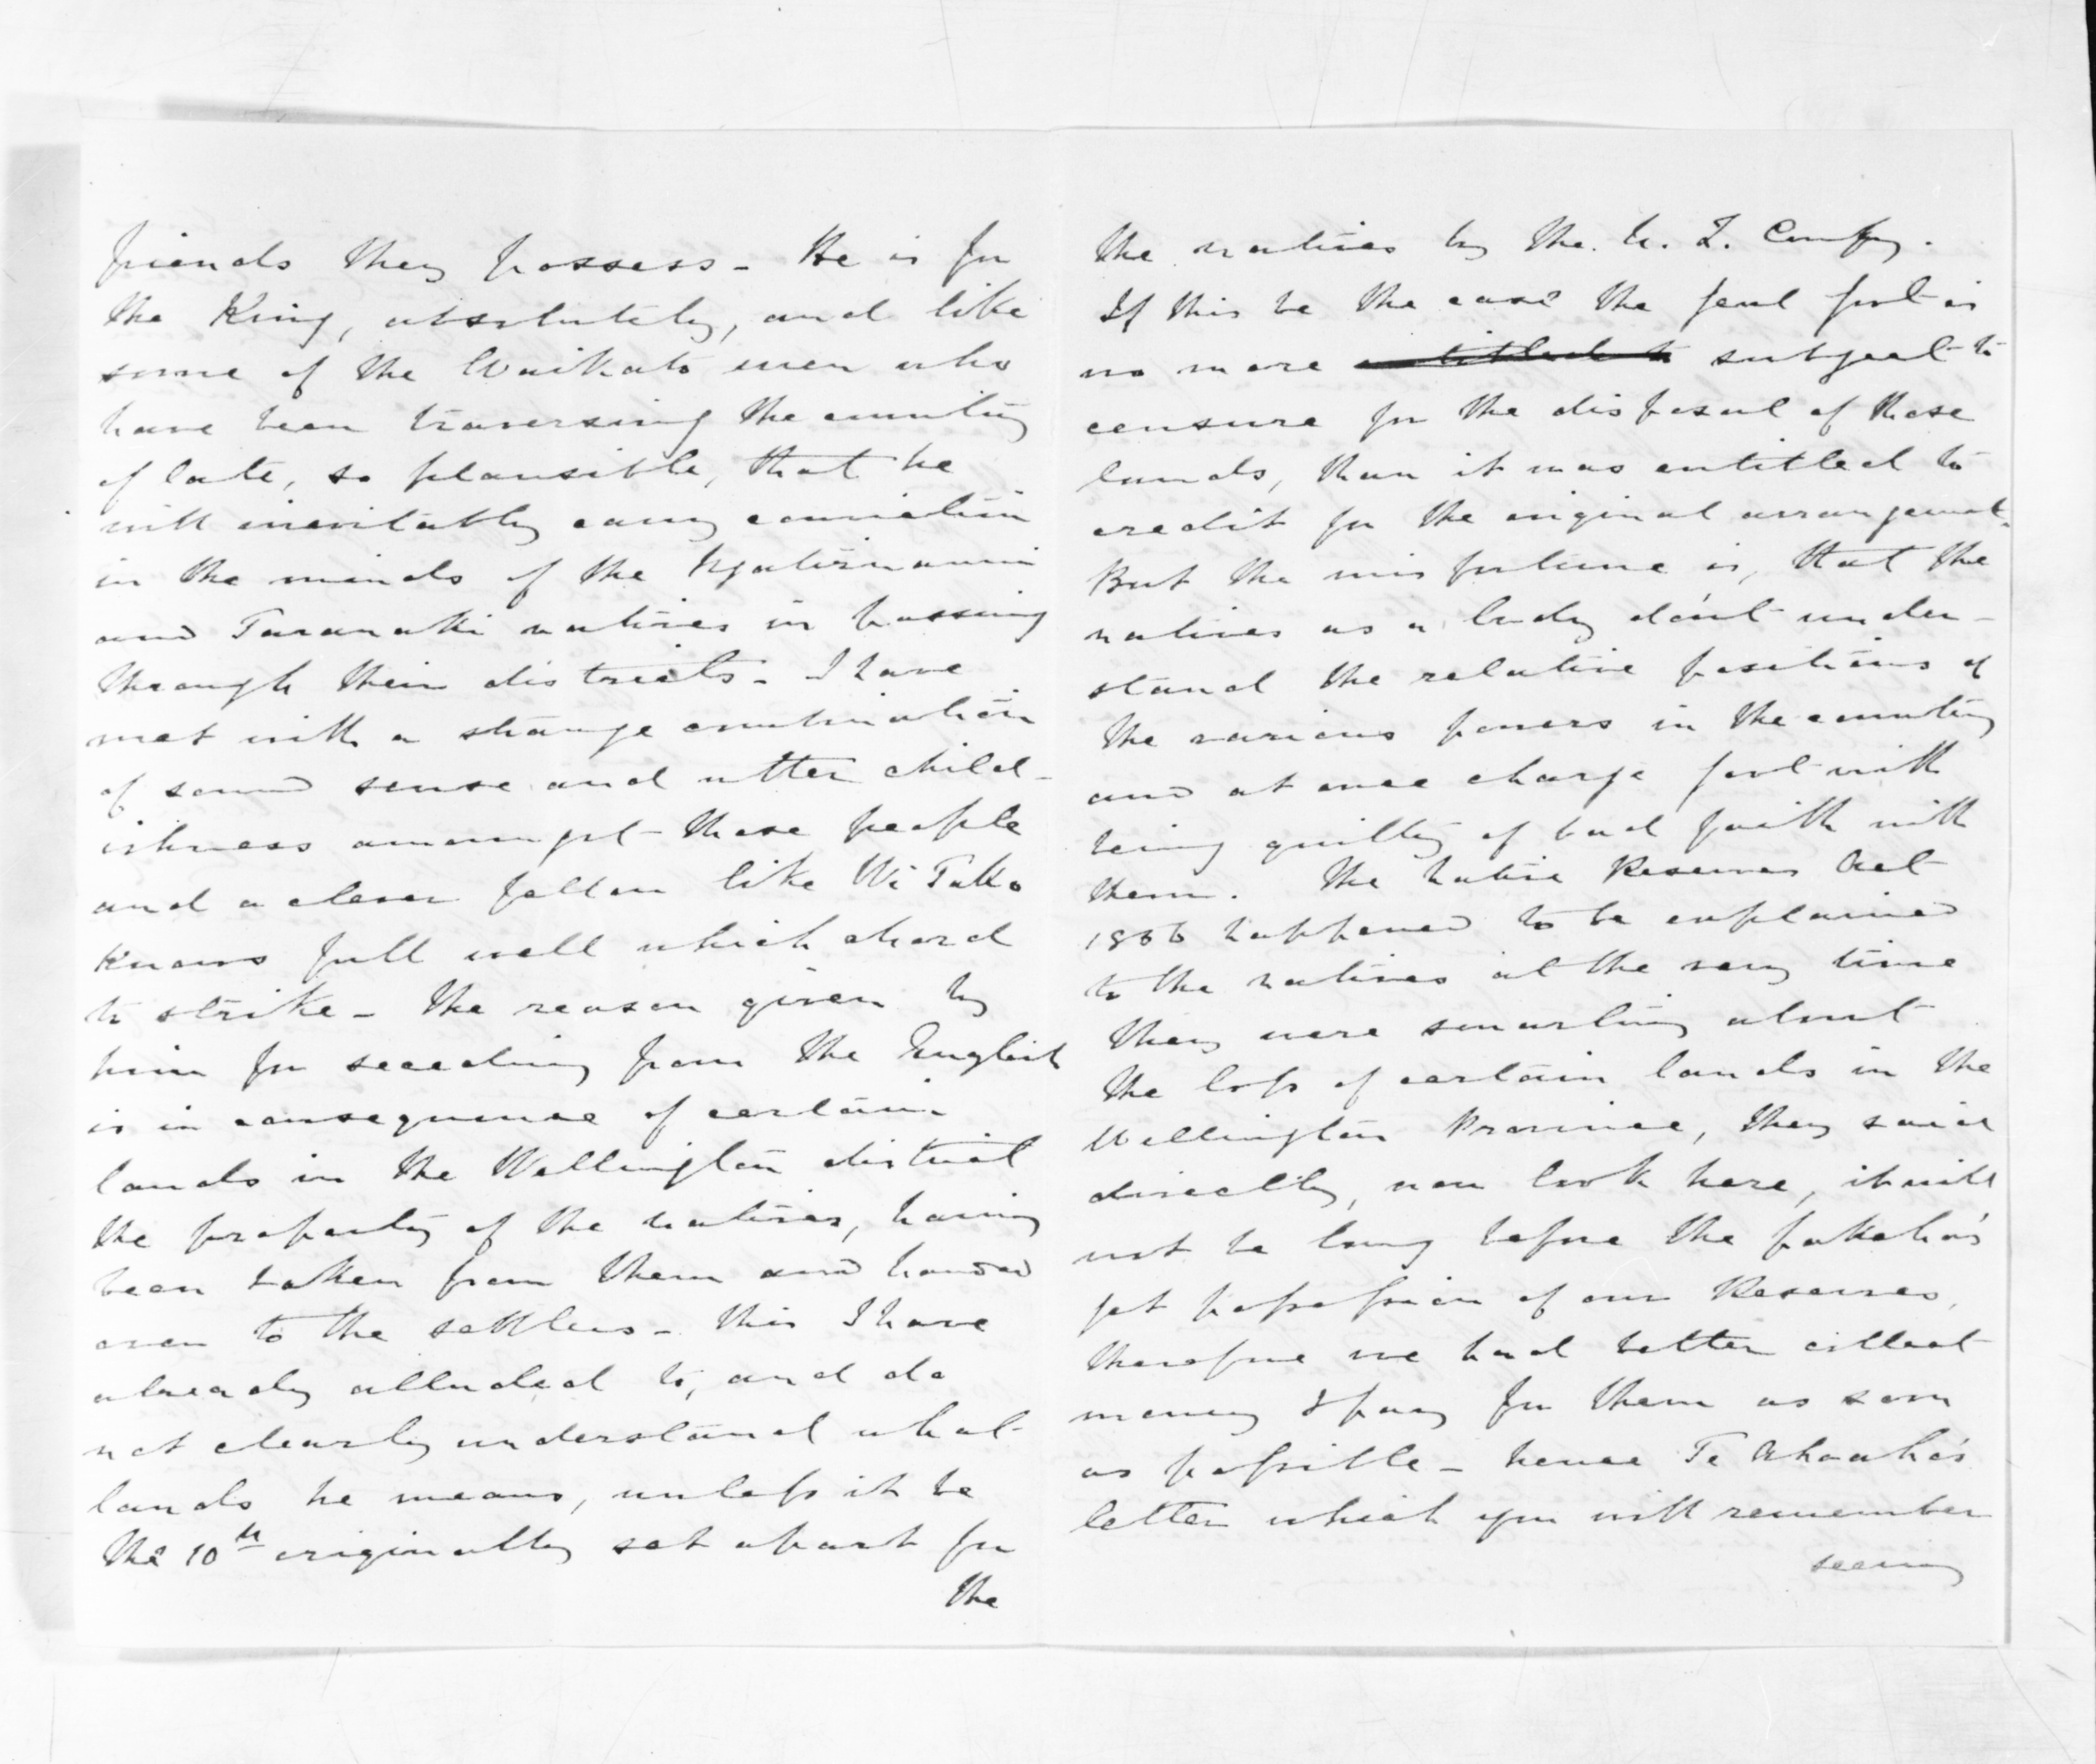 friends they possess - He is for
the King, absolutely, and like
some of the Waikato men who
have been traversing the country
of late, so plausible, that he
will inevitably carry conviction
in the minds of the Ngatiruanui
and Taranaki natives in passing
through their districts - I have
met with a strange combination
of sound sense and utter child-
ishness amongst these people
and a clever fellow like Wi Tako
knows full well which chord
to strike - The reason given by
him for seceding from the English
is in consequence of certain
lands in the Wellington district
the property of the natives, having
been taken from them and handed
over to the settlers - this I have
already alluded to, and do
not clearly understand what
lands he means, unless it be
the 10th originally set apart for
the
the natives by the N. Z. Compy.
If this be the case the genl govt is
no more entitled to subject to
censure for the disposal of those
lands, than it was entitled to
credit for the original arrangemet.
But the misfortune is, that the
natives as a body don't under-
stand the relative positions of
the various powers in the country
and at once charge govt with
being guilty of bad faith with
them. The Native Reserves Act
1856 happened to be explained
to the natives at the very time
they were smarting about
the loss of certain lands in the
Wellington Province, they said
directly, now look here, it will
not be long before the pakeha's
get possession of our Reserves,
therefore we had better collect
money & pay for them as soon
as possible - hence Te
letter which you will remember
seeing